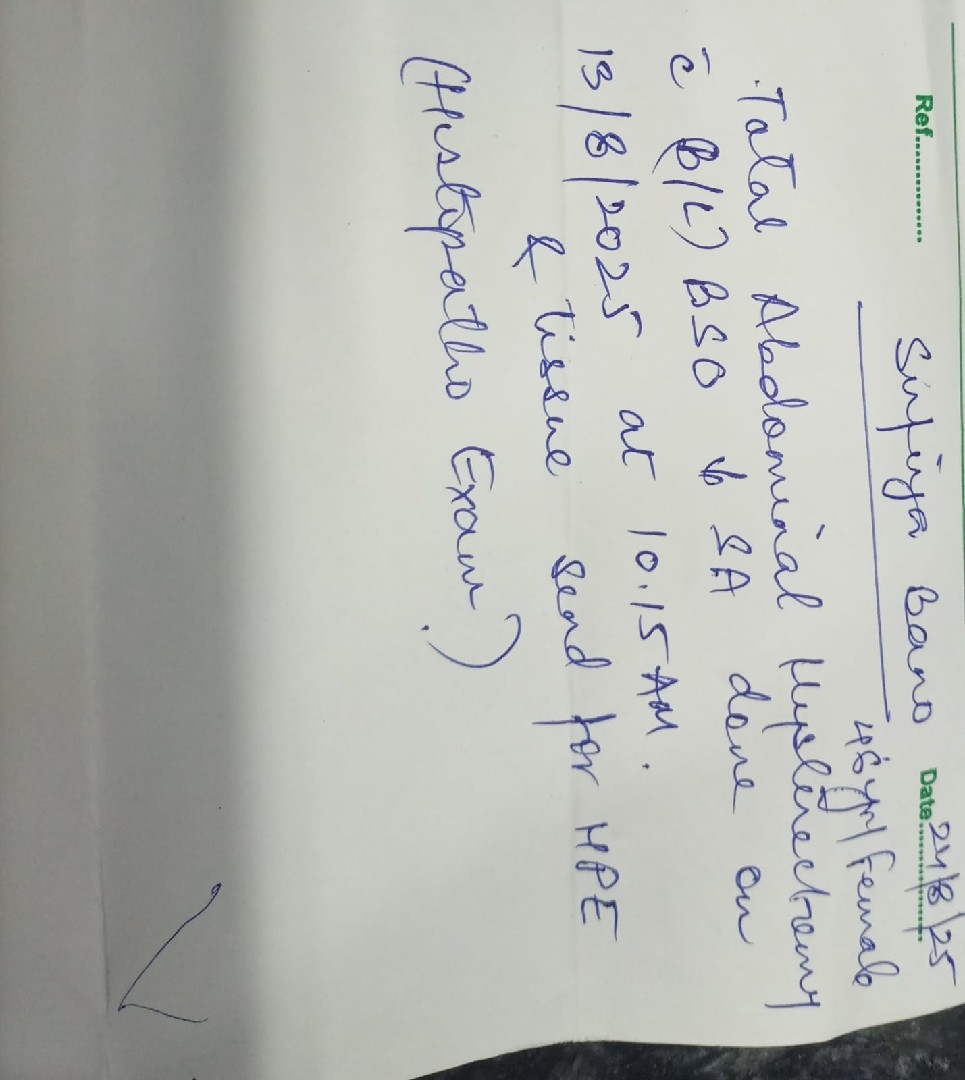 Ref............... Date 24/8/25
Sufiya Bano
48 yr/Female
Total Abdominal Hysterectomy
c̄ (B/L) BSO ↓ SA done on
13/8/2025 at 10.15 AM.
& tissue send for HPE
(Histopatho Exam.)